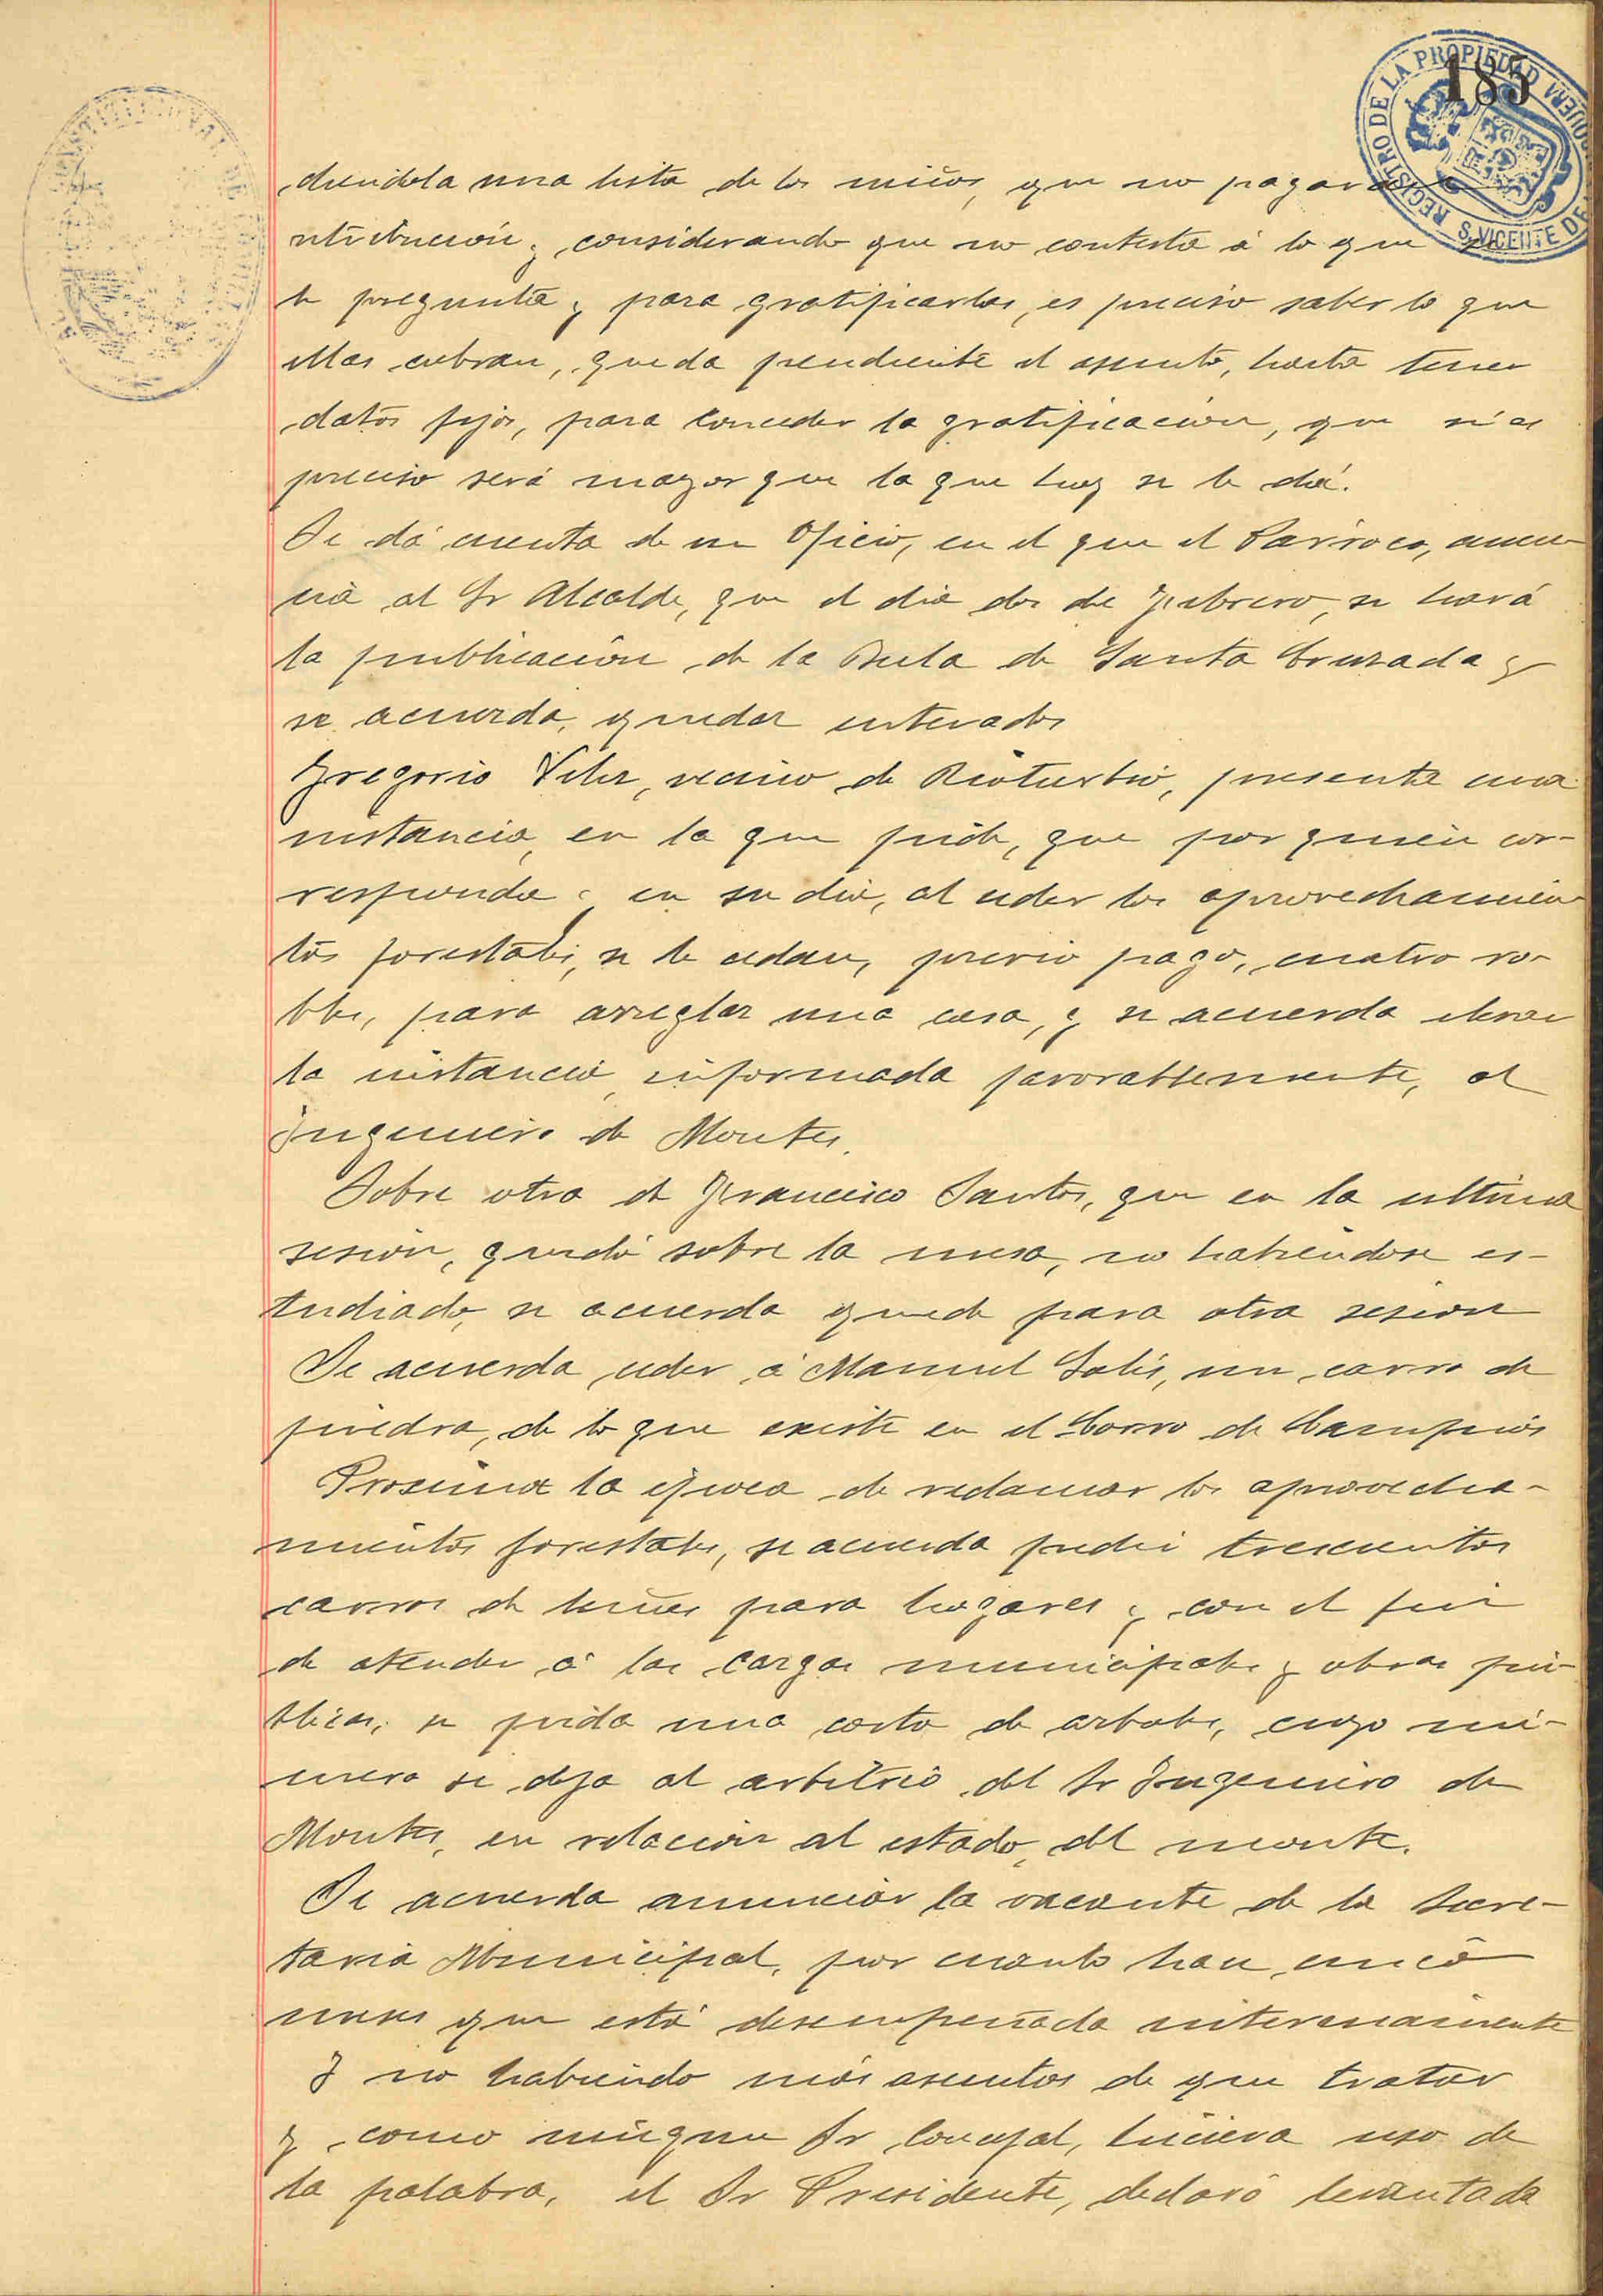 185
REGISTRO DE LA PROPIEDAD
S. VICENTE DE
diendola una lista de los niños, que no pagarán
ntribución y considerando que no contesta á lo que se
le pregunta y para gratificarlas, es preciso saber lo que
ellas cobran, queda pendiente el asunto, hasta tener
datos fijos, para conceder la gratificación, que si es
preciso será mayor que la que hoy se le dá.
Se dá cuenta de un Oficio, en el que el Párroco, anun
cia al Sr Alcalde, que el dia dos de Febrero, se hará
la publicación de la Bula de Santa Cruzada y
se acuerda, quedar enterados
Gregorio Velez, vecino de Rioturbio, presenta una
instancia, en la que pide, que por quien cor-
responda y en su dia, al ceder los aprovechamien
tos forestales, se le cedan, previo pago, cuatro ro-
bles, para arreglar una casa, y se acuerda elevar
la instancia, informada favorablemente, al
Ingeniero de Montes.
Sobre otra de Francisco Santos, que en la ultima
sesión, quedó sobre la mesa, no habiendose es-
tudiado, se acuerda quede para otra sesion
Se acuerda ceder á Manuel Solis, un carro de
piedra, de lo que existe en el Corro de Campios
Proxima la época de reclamar los aprovecha-
mientos forestales, se acuerda pedir trescientos
carros de leñas para hogares y con el fin
de atender á las cargas municipales y obras pú-
blicas, se pida una corta de arboles, cuyo nú-
mero se deja al arbitrio del Sr Ingeniero de
Montes, en relación al estado, del monte.
Se acuerda anunciar la vacante de la Secre-
taria Municipal, por cuanto hace cinco
meses que está desempeñada interinamente
Y no habiendo más asuntos de que tratar
y como ningun Sr Concejal, hiciera uso de
la palabra, el Sr Presidente, declaró levantada